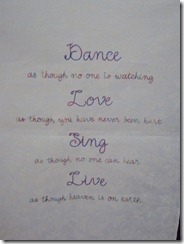 Dance
as though no one is watching
Love
as though you have never been hurt
Sing
as though no one can hear
Live
as though heaven is on earth